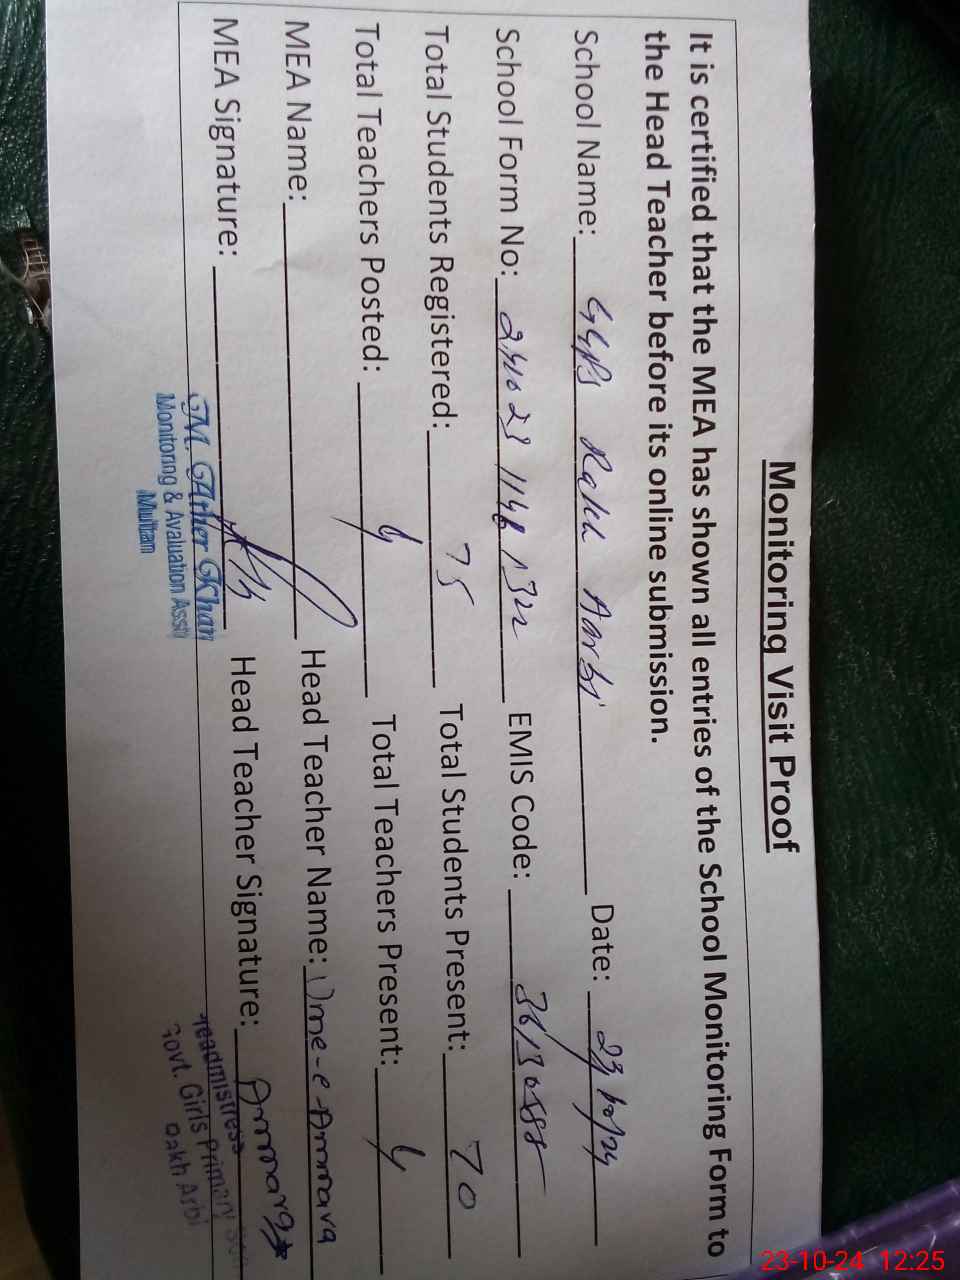 Monitoring Visit Proof
It is certified that the MEA has shown all entries of the School Monitoring Form to
the Head Teacher before its online submission.
School Name: GGPS Rakh Aarbi Date: 23/10/24
School Form No: EMIS Code:
Total Students Registered: 75 Total Students Present: 70
Total Teachers Posted: 4 Total Teachers Present: 4
MEA Name: Head Teacher Name: Ume-e-Ammara
MEA Signature: Head Teacher Signature: Ammara
M. Ather Khan
Monitoring & Avaluation Asstt
Multan
Headmistress
Govt. Girls Primary
Rakh Arbi
23-10-24 12:25